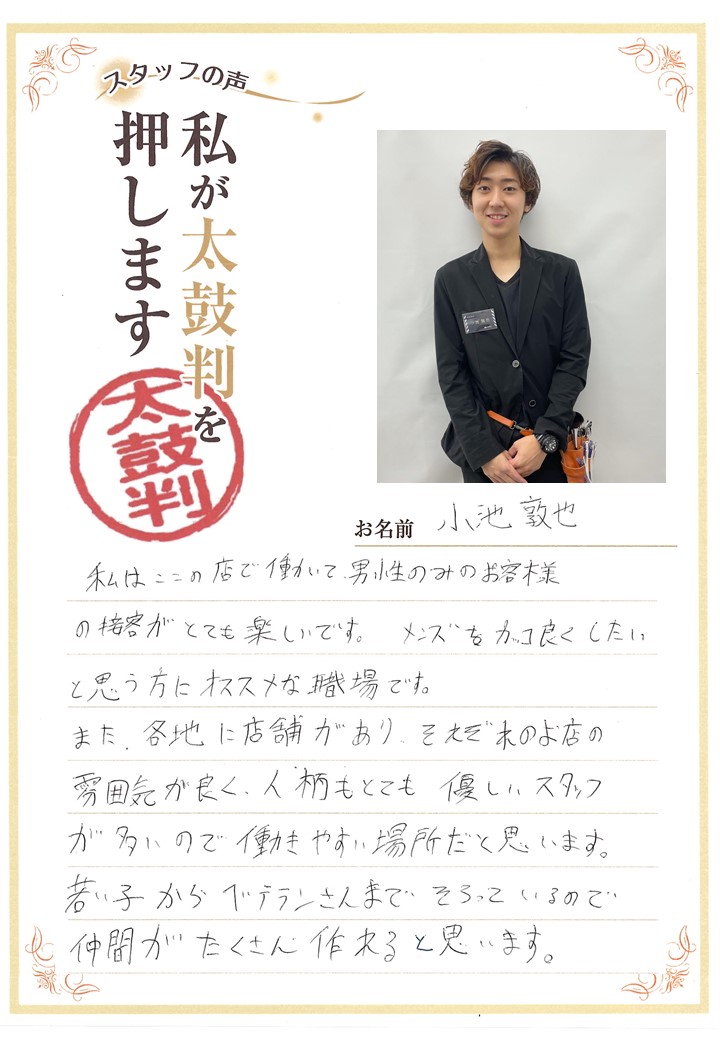 スタッフの声
私が太鼓判を
押します
太鼓判
お名前 小池敦也
私はここの店で働いて、男性のみのお客様
の接客がとても楽しいです。メンズをカッコ良くしたい
と思う方にオススメな職場です。
また、各地に店舗があり、それぞれのお店の
雰囲気が良く、人柄もとても優しいスタッフ
が多いので働きやすい場所だと思います。
若い子からベテランさんまでそろっているので
仲間がたくさん作れると思います。